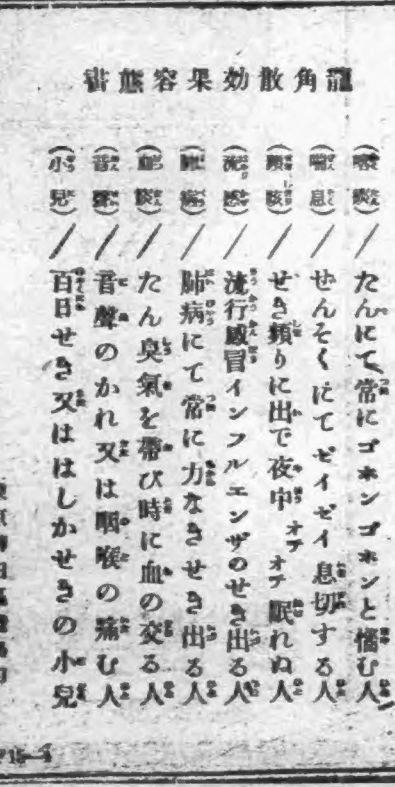 龍角散効果容態書
(喀痰)/たんにて常にゴホンゴホンと惱む人
(喘息)/ぜんそくにてゼイゼイ息切する人
(頻咳)/せき頻りに出で夜中オチオチ眠れぬ人
(流感)/流行感冒インフルエンザのせき出る人
(肺病)/肺病にて常に力なきせき出る人
(血痰)/たん臭氣を帶び時に血の交る人
(音聲)/音聲のかれ又は咽喉の痛む人
(小兒)/百日せき又ははしかせきの小兒